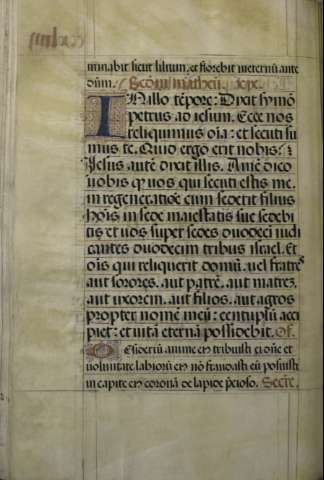 minabit sicut lilium. et florebit ineternū ante
dūm. Scdm matheū.
In illo tēpore: Dixit symō
petrus ad iesum. Ecce nos
reliquimus oīa: et secuti su
mus te. Quid ergo erit nobis?
Iesus autē dixit illis. Amē dico
uobis qr uos qui secuti estis me.
in regeneratiōe cum sederit filius
hoīs in sede maiestatis sue sedebi
tis et uos super sedes duodecī iudi
cantes duodecim tribus israel. Et
oīs qui reliquerit domū. uel fratres
aut sorores. aut patrē. aut matrē,
aut uxorem. aut filios. aut agros
propter nomē meū: centuplū acci
piet: et uitā eternā possidebit. Of.
Desideriū anime eius tribuisti ei dn̄e et
uoluntate labiorū eius nō fraudasti eū posuisti
in capite eius coronā de lapide p̄cioso. Secre.